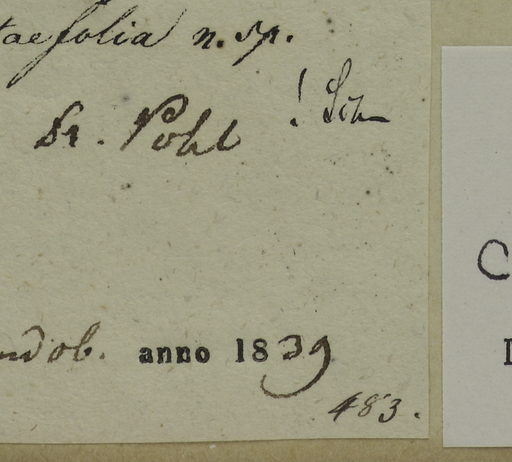 taefolia n. sp.
! Sch
Dr. Pohl
ndob. anno 1839
483.
C